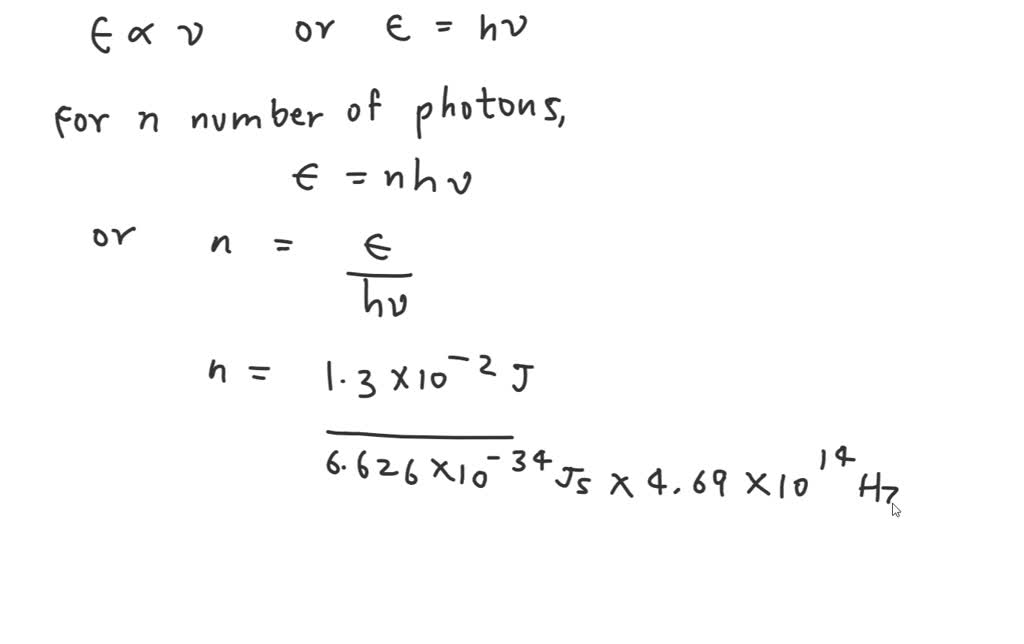 E ∝ ν or E = hν
For n number of photons,
E = nhν
or n = E / hν
n = 1.3 × 10⁻² J
6.626 × 10⁻³⁴ Js × 4.69 × 10¹⁴ Hz